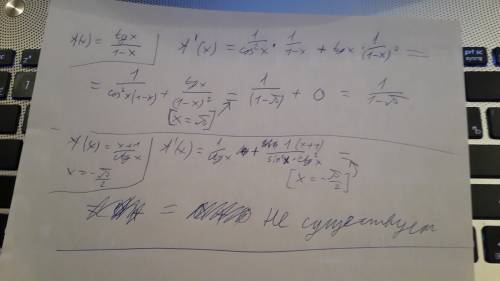 f(x) = tgx/(1-x) | f'(x) = 1/cos²x · 1/(1-x) + tgx · 1/(1-x)² =
= 1/(cos²x(1-x)) + tgx/(1-x)² = 1/(1-π) + 0 = 1/(1-π)
[x=π]
f(x) = (x+1)/ctgx | f'(x) = 1/ctgx + 1(x+1)/(sin²x·ctg²x) =
x = -π/2 [x = -π/2]
= не существует